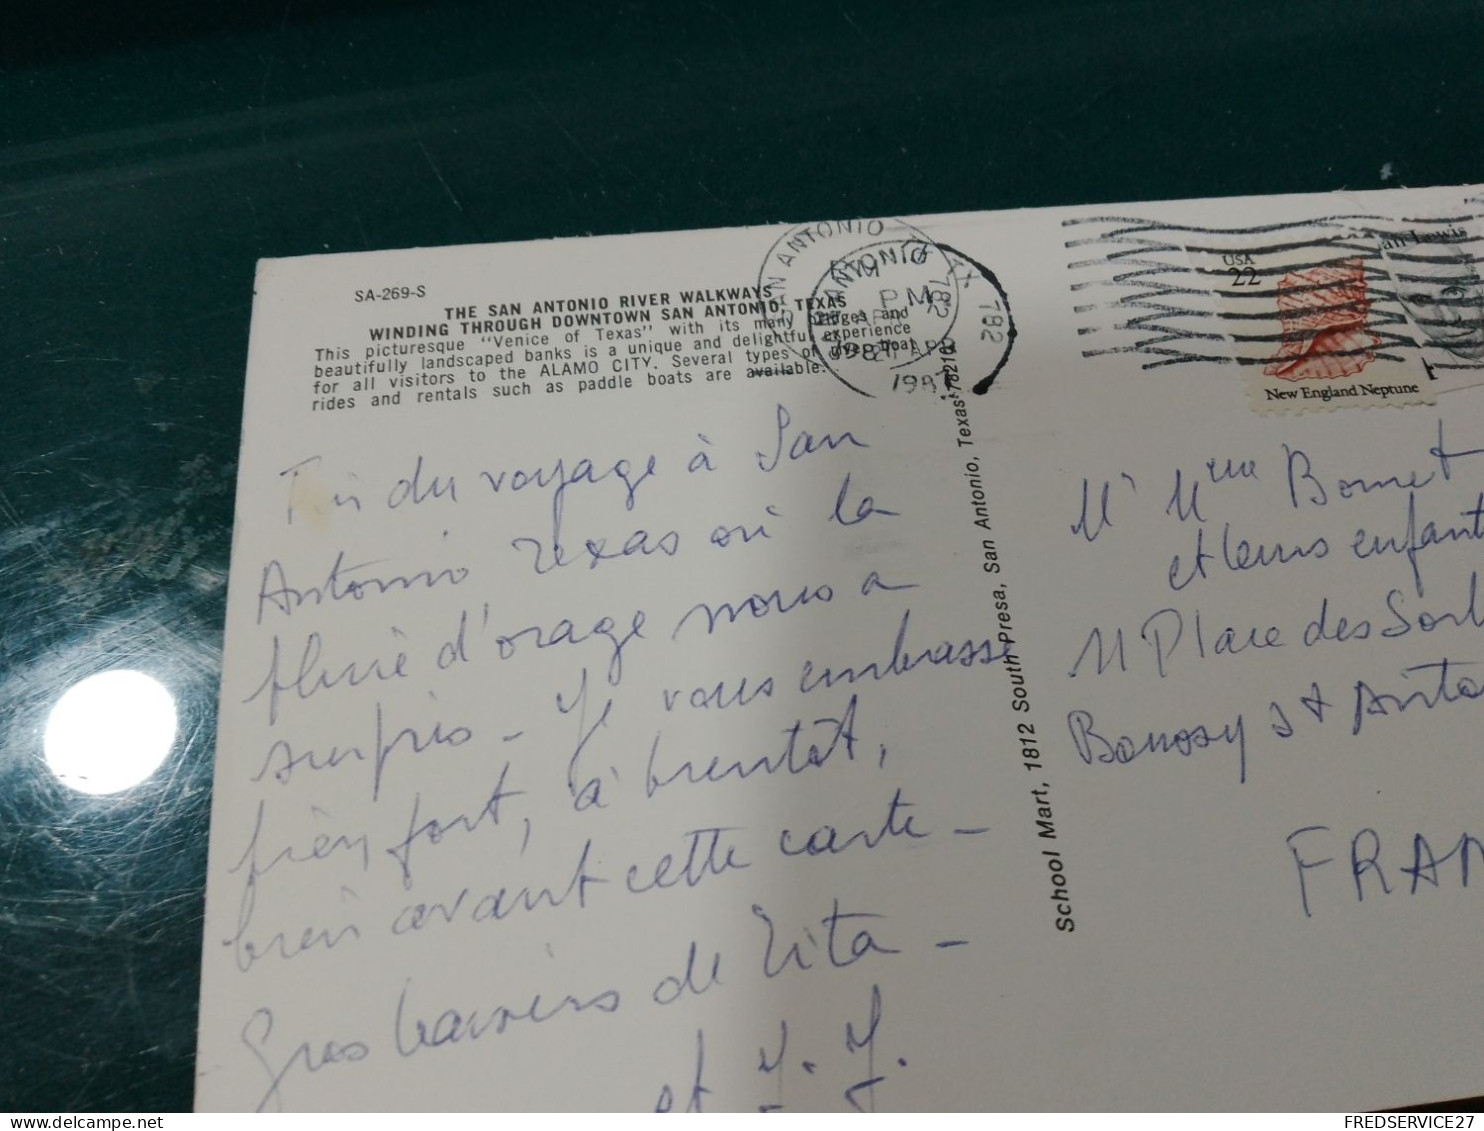 SA-269-S
THE SAN ANTONIO RIVER WALKWAYS
WINDING THROUGH DOWNTOWN SAN ANTONIO, TEXAS
This picturesque "Venice of Texas" with its many bridges and
beautifully landscaped banks is a unique and delightful experience
for all visitors to the ALAMO CITY. Several types of boat
rides and rentals such as paddle boats are available.
SAN ANTONIO
ANTONIO
782
782
PM
PM
APR
1987
USA
22
New England Neptune
Lewis
Fin du voyage à San
Antonio Texas où la
pluie d'orage nous a
surpris - Je vous embrasse
bien fort, à bientôt,
bien avant cette carte -
Gros baisers de Zita -
et J. J.
School Mart, 1812 South Presa, San Antonio, Texas 78210
Mr Mme Bonnet
et leurs enfant
11 Place des
St Anto
FRAN
FREDSERVICE27